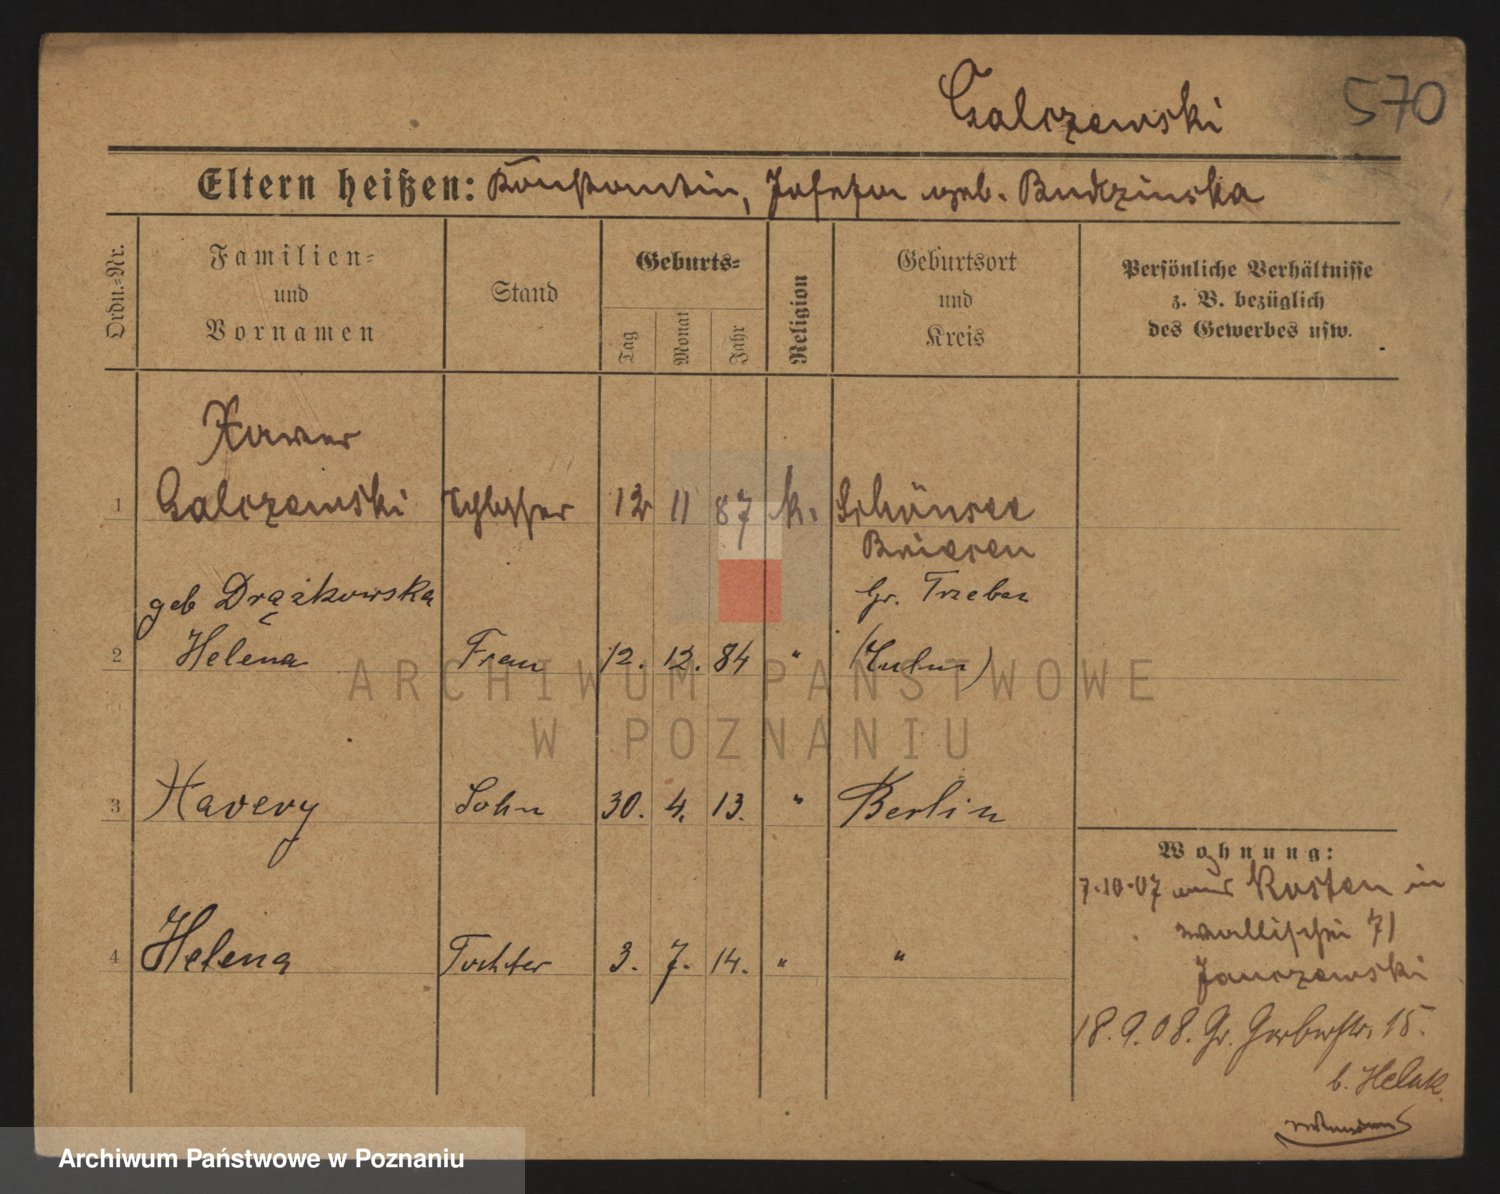 Galczewski 570
Eltern heißen: Konstantin, Josefa geb. Budzinska
Ordn.-Nr.
Familien-
und
Vornamen
Stand
Geburts-
Tag
Monat
Jahr
Religion
Geburtsort
und
Kreis
Persönliche Verhältnisse
z. B. bezüglich
des Gewerbes usw.
Xawer
1 Galczewski Schlosser 12 11 87 k. Schönsee
Briesen
geb Drążkowska Gr. Trzebcz
2 Helena Frau 12. 12. 84 " (Culm)
ARCHIWUM PAŃSTWOWE
W POZNANIU
3 Xavery Sohn 30. 4. 13. " Berlin
Wohnung:
7.10.07 aus Kosten in
Wallischei 71
Janczewski
4 Helena Tochter 3. 7. 14. " "
18.9.08. Gr. Gerberstr. 15.
b. Helak
Archiwum Państwowe w Poznaniu